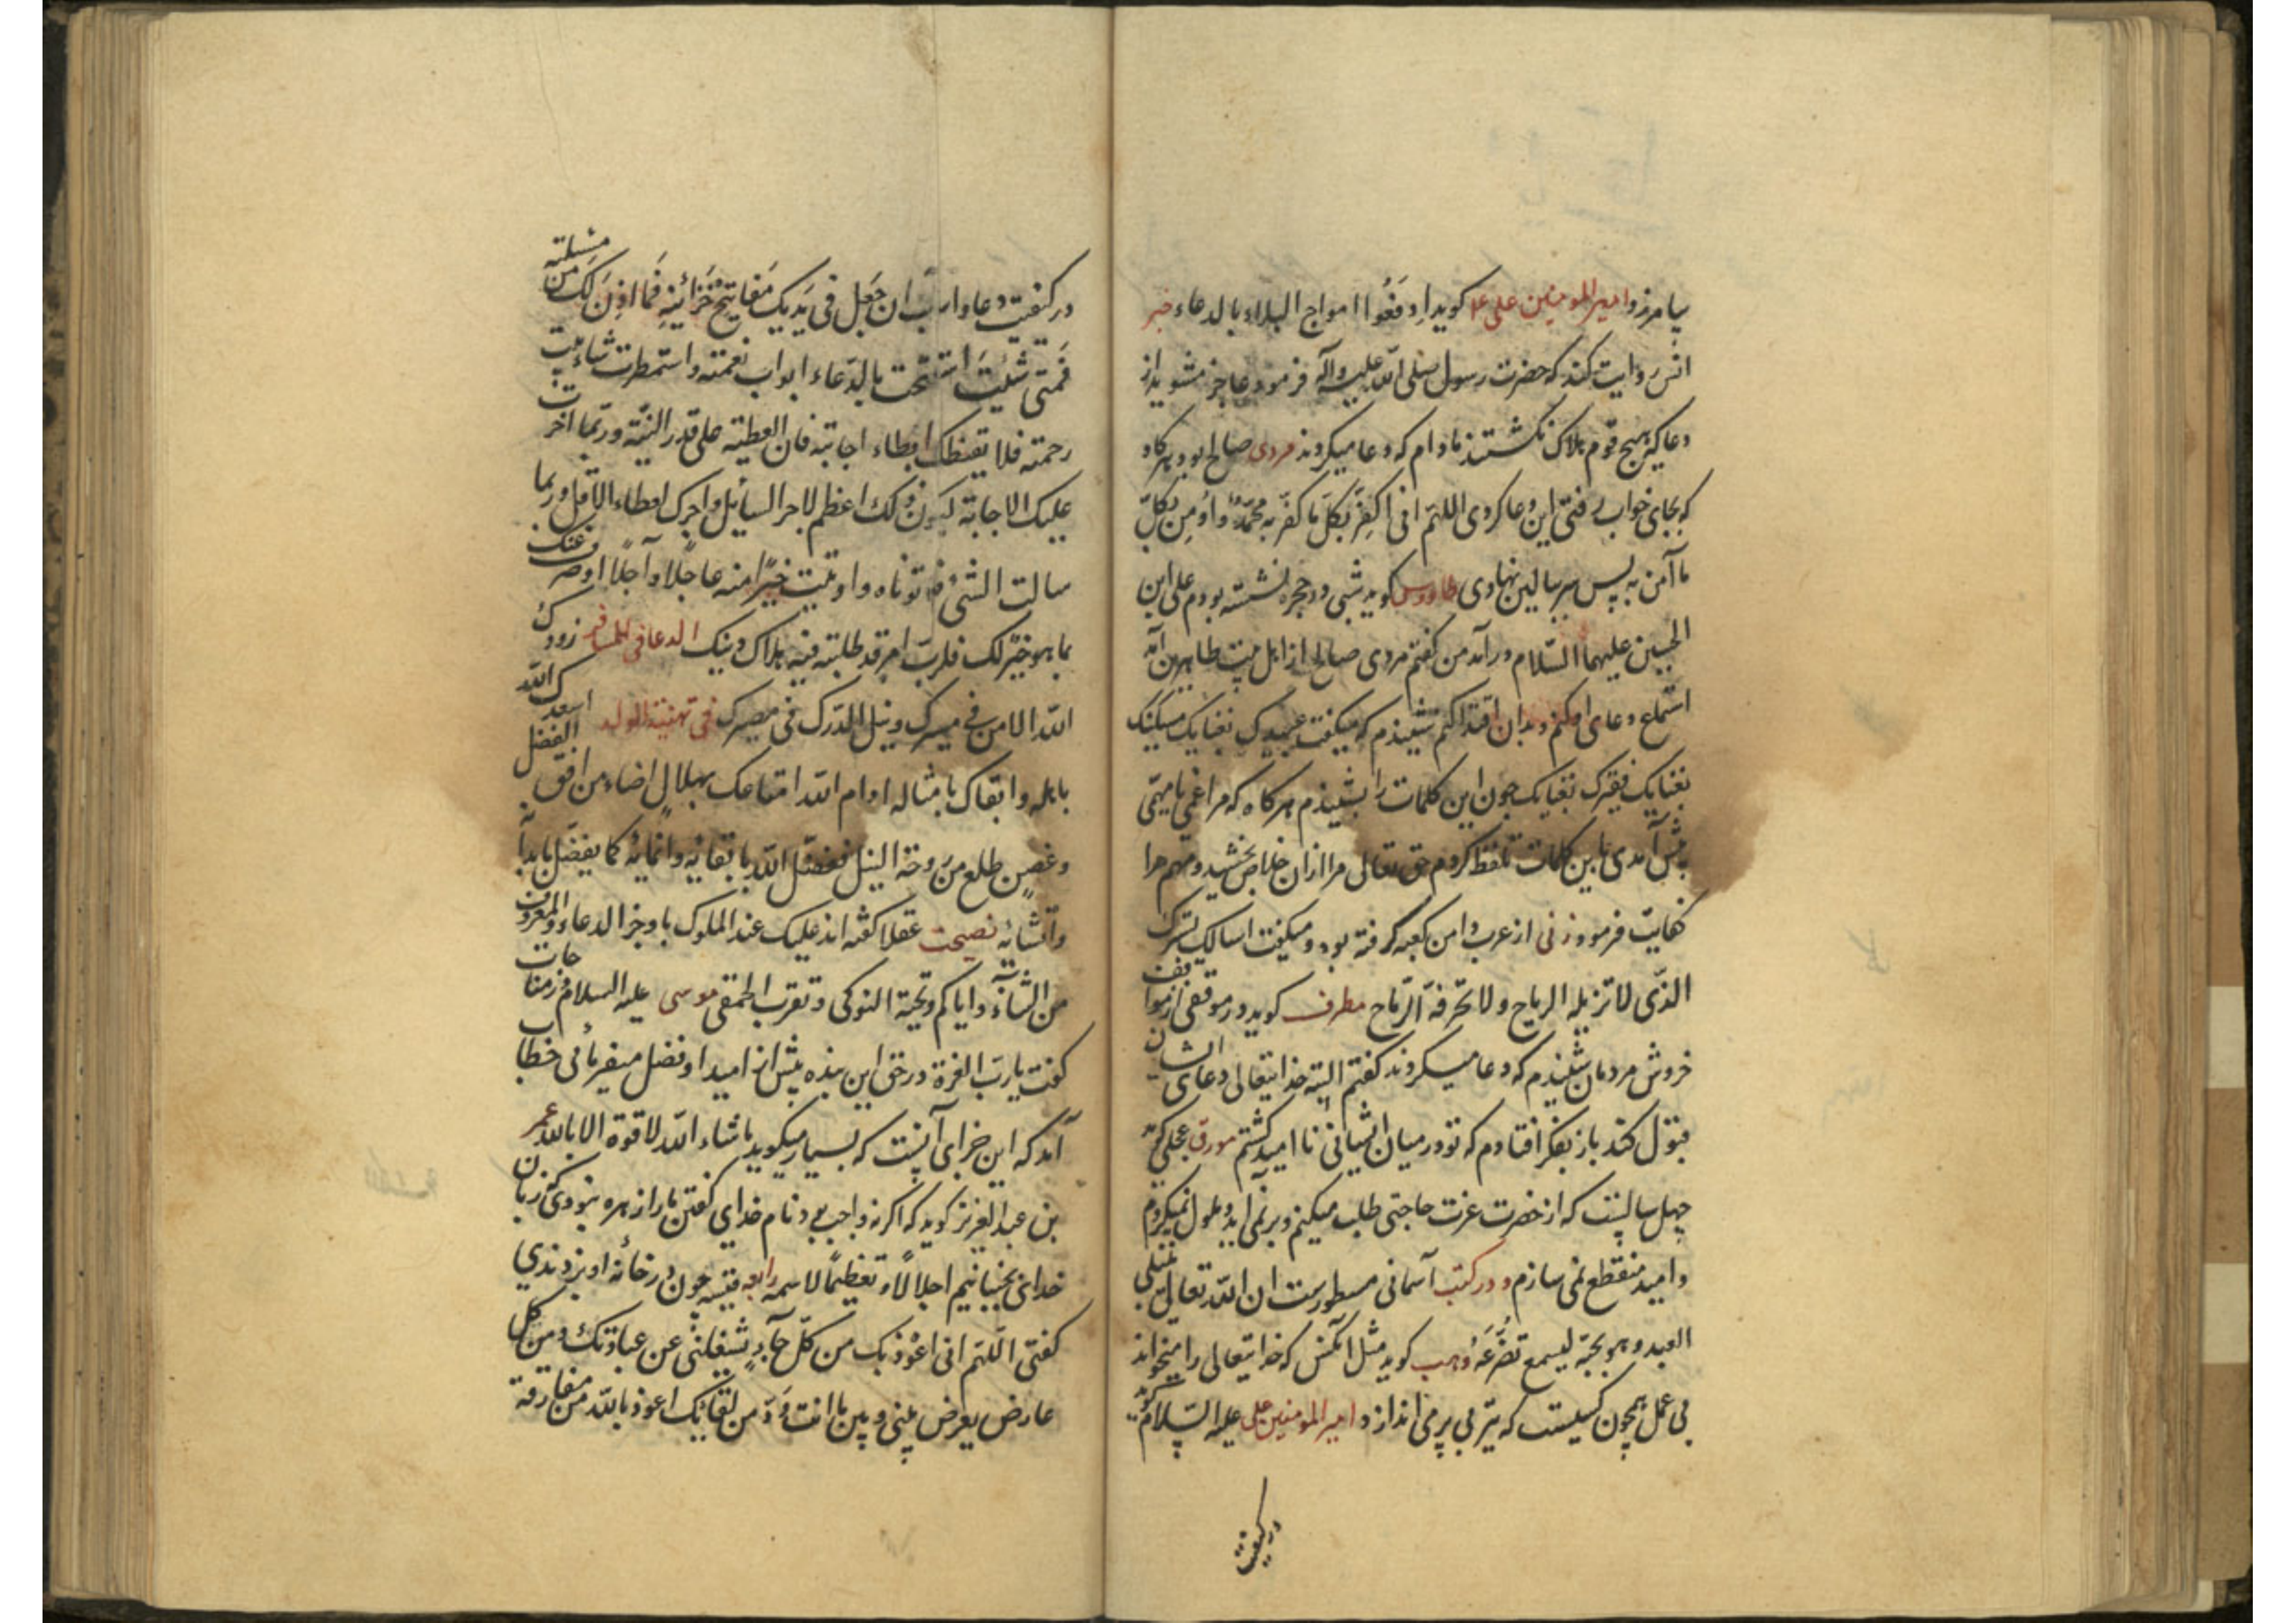 بیامرزد و امیرالمومنین علی علا کوید ادفعوا امواج البلاء بالدعاء خبر
انس روایت کند که حضرت رسول صلی الله علیه وآله فرمود عاجز مشوید از
دعا که هیچ قوم هلاک نکشتند مادام که دعا میکردند مردی صالح بود هرکاه
که بجای خواب رفتی این دعا کردی اللهم انی اکفر بکل ما کفر به محمد واومن بکل
ما آمن به پس سر ببالین نهادی طاووس کوید شبی در حجره نشسته بودم علی ابن
الحسین علیهما السلام درآمد من کفتم مردی صالح از اهل بیت طاهرین آمد
استماع دعای او کنم وبدان اقتدا کنم شنیدم که میکفت عبیدک بفنایک مسکینک
بفنایک فقیرک بفنایک چون این کلمات را بشنیدم هرکاه که مرا غمی یا مهمی
پیش آمدی باین کلمات تلفظ کردم حق تعالی مرا ازان خلاص بخشید ومهم مرا
کفایت فرمود زنی از عرب دامن کعبه کرفته بود ومیکفت اسالک بسترک
الذی لا تزیله الریاح ولا تخرقه الرماح مطرف کوید در موقفی از مواقف
خروش مردمان شنیدم که دعا میکردند کفتم البته خدایتعالی دعای ایشان
قبول کند باز بفکر افتادم که تو در میان ایشانی ناامید کشتم مورق عجلی کوید
چهل سالیست که از حضرت عزت حاجتی طلب میکنم وبرنمی آید وملول نمیکردم
وامید منقطع نمی سازم ودر کتب آسمانی مسطورست ان الله تعالی یبتلی
العبد وهو یحبه لیسمع تضرعه وهب کوید مثل آنکس که خدایتعالی را میخواند
بی عمل همچون کسیست که تیر بی پر می اندازد امیرالمومنین علی علیه السلام کوید
در کیفیت
در کیفیت دعا وارب ان جعل فی یدیک مفاتیح خزائنه فما اذن لک من مسئلته
فمتی شئت استفتحت بالدعاء ابواب نعمته واستمطرت شآبیب
رحمته فلا یقنطک ابطاء اجابته فان العطیة علی قدر النیة وربما اخرت
علیک الاجابة لیکون ذلک اعظم لاجر السائل واجزل لعطاء الآمل وربما
سالت الشیء فلا توتاه واوتیت خیرا منه عاجلا وآجلا اوصرف عنک
بما هو خیر لک فلرب امر قد طلبته فیه هلاک دینک الدعا فی المسافر زودک
الله الامن فی مسیرک ونیل الدرک فی مصیرک فی تهنیة الولد اسعدک الله
باهله وابقاک بامثاله ادام الله امتاعک بهلال اضاء من افق الفضل
وغصن طلع من روحة النیل فضل الله بابقائه وانمائه کما یفضل بابدائه
وانشائه نصیحت عقلا کفته اند علیک عند الملوک باوجز الدعاء والمعروف
من الثناء وایاکم وتحیة النوکی وتقرب الحمقی موسی علیه السلام در مناجات
کفت یارب العزة در حق این بنده بیش از امید او فضل میفرمائی خطاب
آمد که این جزای آنست که بسیار میکوید ماشاء الله لا قوة الا بالله عمر
بن عبدالعزیز کوید که اکر نه واجب بود نام خدای کفتن ما را زهره نبودی که زبان
خدای بجنبانیم اجلالا وتعظیما لاسمه رابعه قیسیه چون در خانه او بزدندی
کفتی اللهم انی اعوذبک من کل جاء یشغلنی عن عبادتک ومن کل
عارض یعرض بینی وبین ما انت ود من لقائک اعوذ بالله من مفارقة